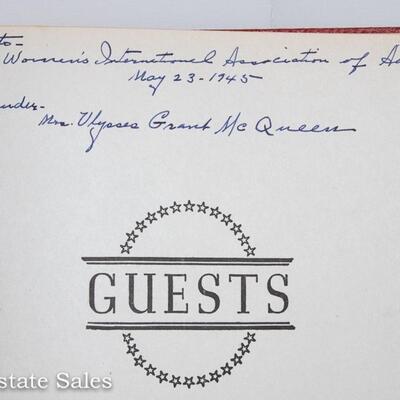 to-
Women's International Association of
May 23-1945
Mrs. Ulysses Grant McQueen
GUESTS
state Sales